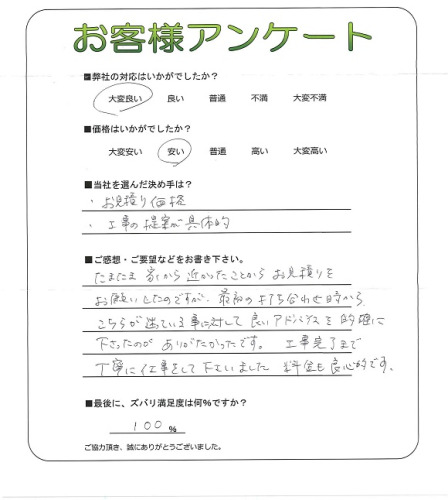 お客様アンケート
■弊社の対応はいかがでしたか？
大変良い 良い 普通 不満 大変不満
■価格はいかがでしたか？
大変安い 安い 普通 高い 大変高い
■当社を選んだ決め手は？
・お見積り価格
・工事の提案が具体的
■ご感想・ご要望などをお書き下さい。
たまたま家から近かったことからお見積りを
お願いしたのですが、最初の打ち合わせ時から
こちらが迷っている事に対して良いアドバイスを的確に
下さったのがありがたかったです。工事完了まで
丁寧に仕事をして下さいました 料金も良心的です、
■最後に、ズバリ満足度は何%ですか？
100 %
ご協力頂き、誠にありがとうございました。